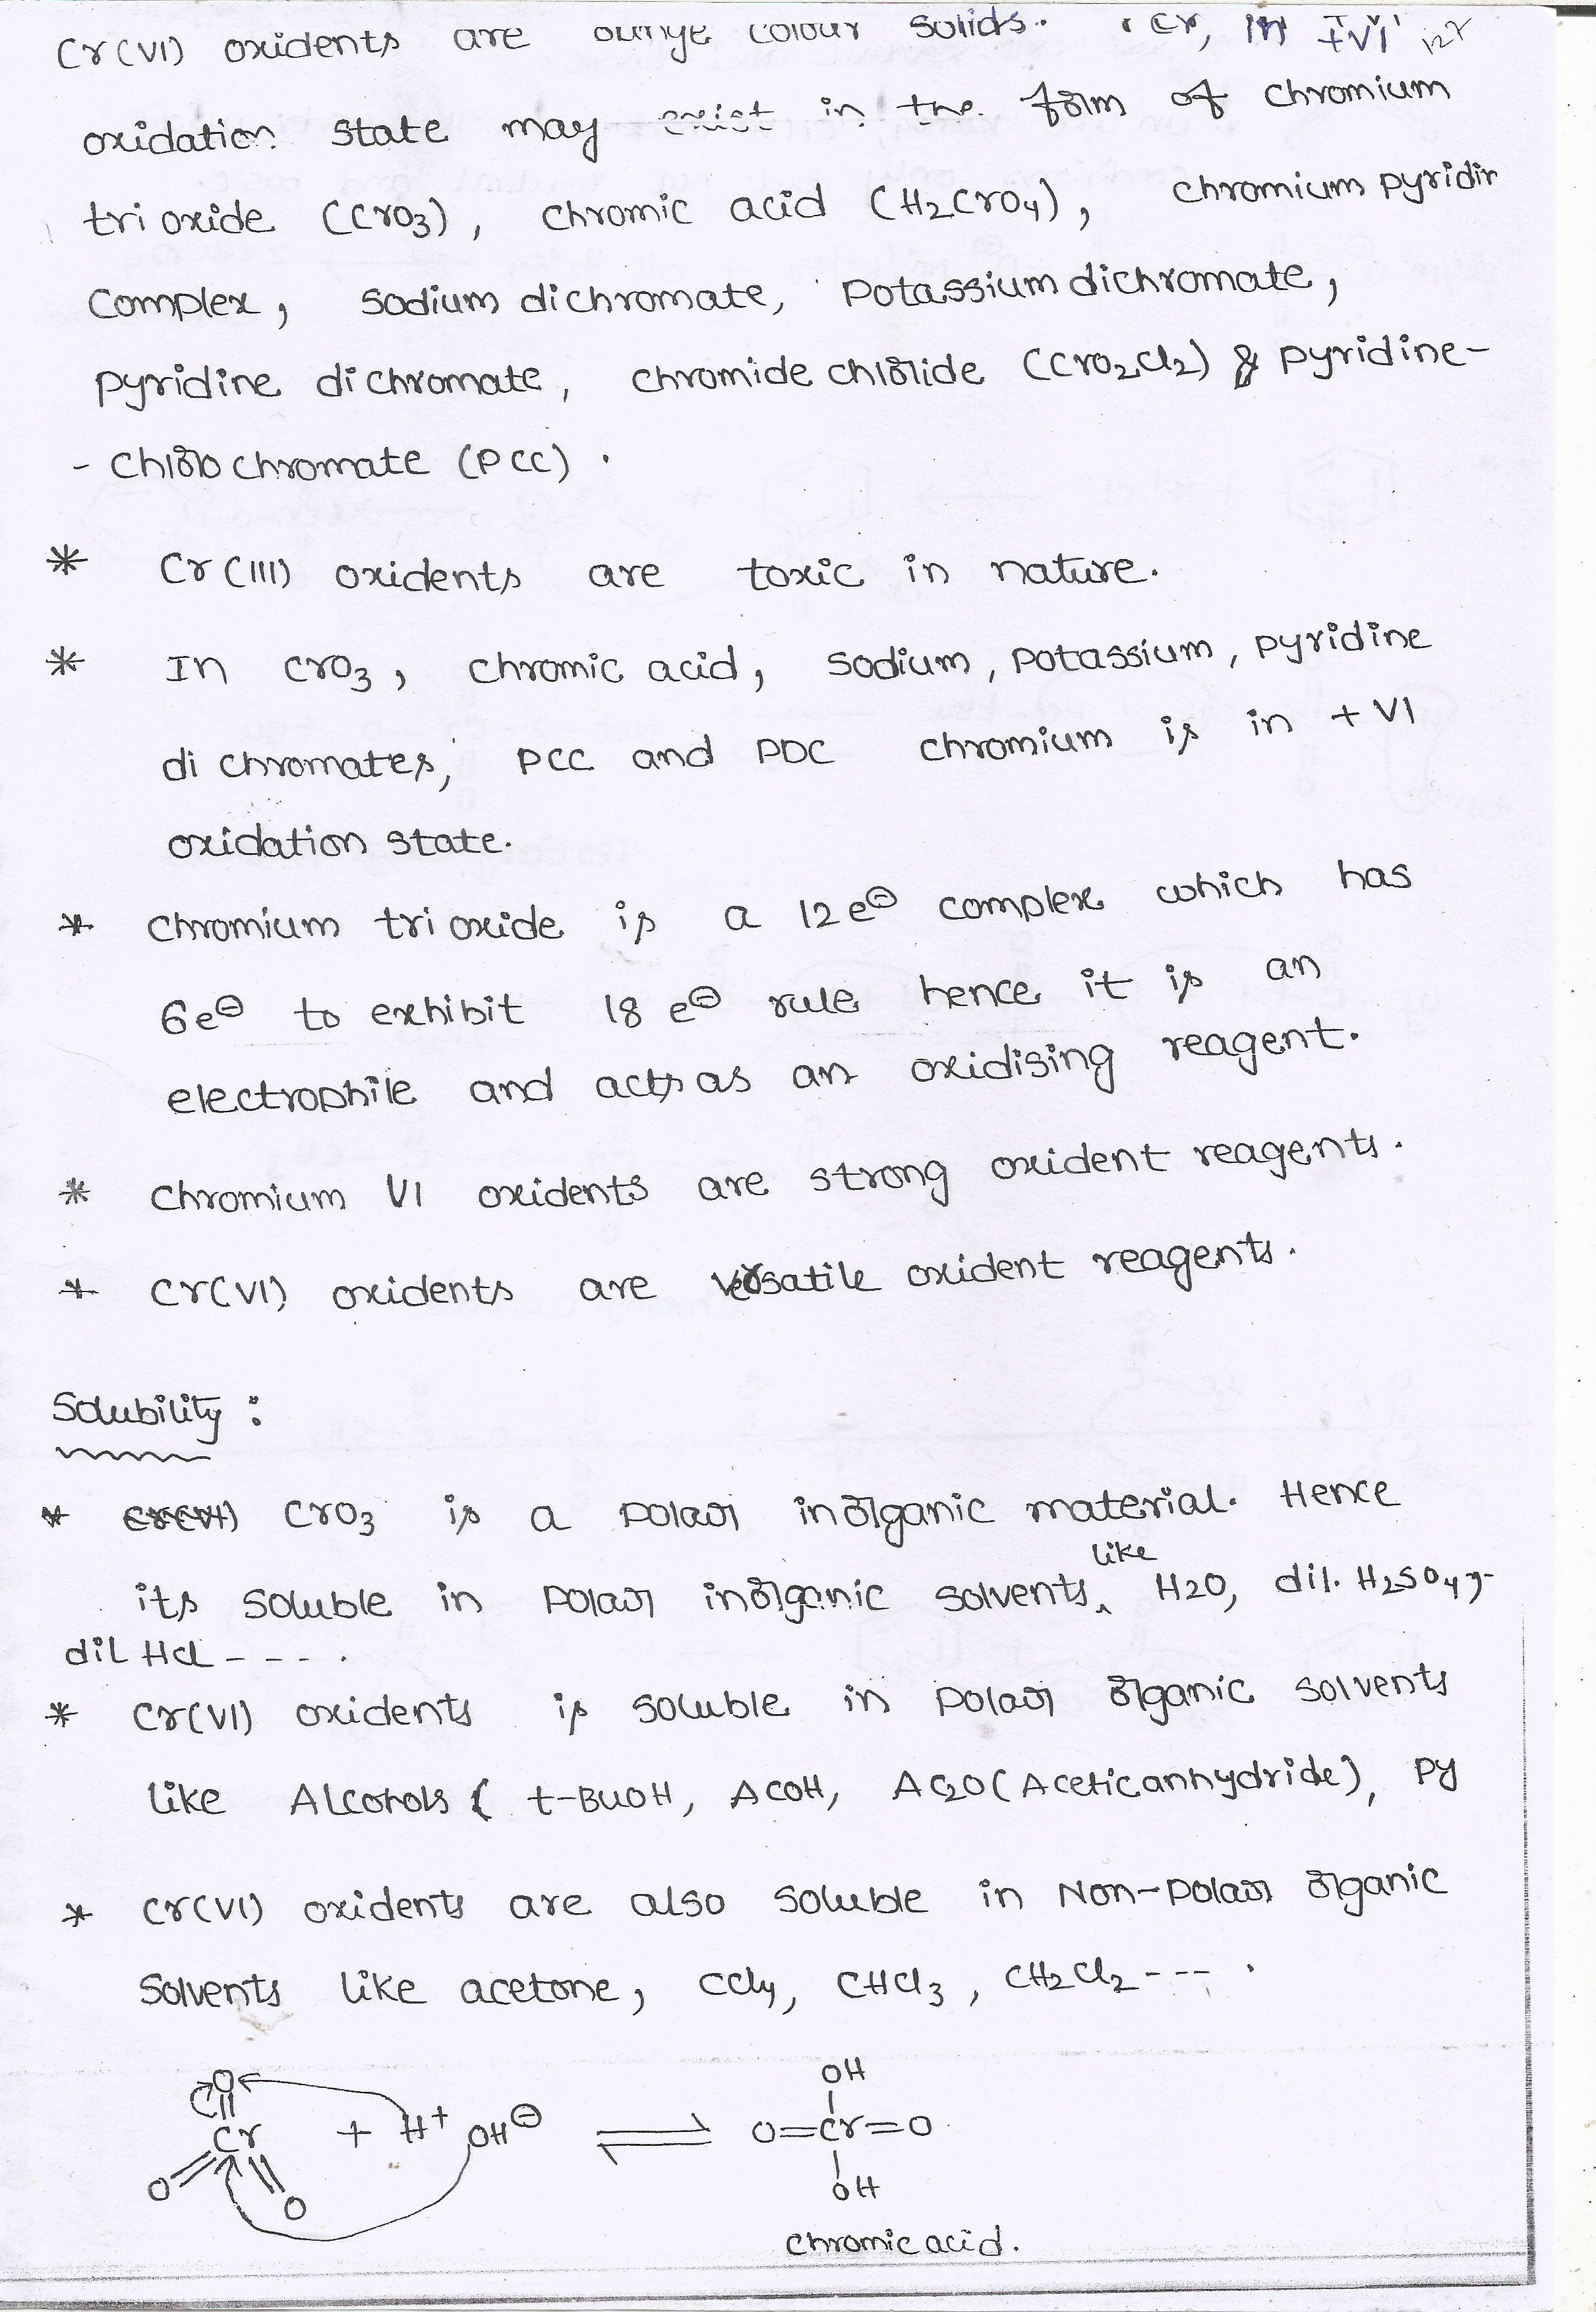 Cr(VI) oxidents are orange colour solids. Cr, in +VI
oxidation state may exist in the form of chromium
tri oxide (CrO3), chromic acid (H2CrO4), chromium pyridin
complex, sodium dichromate, potassium dichromate,
pyridine dichromate, chromide chloride (CrO2Cl2) & pyridine-
- chloro chromate (PCC).
* Cr(III) oxidents are toxic in nature.
* In CrO3, chromic acid, sodium, potassium, pyridine
di chromates, PCC and PDC chromium is in +VI
oxidation state.
* chromium tri oxide is a 12e⊖ complex which has
6e⊖ to exhibit 18 e⊖ rule hence it is an
electrophile and acts as an oxidising reagent.
* chromium VI oxidents are strong oxident reagents.
* Cr(VI) oxidents are versatile oxident reagents.
Solubility :
* Cr(VI) CrO3 is a polar inorganic material. Hence
like
its soluble in polar inorganic solvents, H2O, dil. H2SO4,
dil HCl - - - - .
* Cr(VI) oxidents is soluble in polar organic solvents
like Alcohols ( t-BuOH, AcOH, Ac2O (Acetic anhydride), Py
* Cr(VI) oxidents are also soluble in Non-polar organic
solvents like acetone, CCl4, CHCl3, CH2Cl2 - - - .
O OH
Cr + H+ OH⊖ ⇌ O=Cr=O
O O OH
chromic acid.